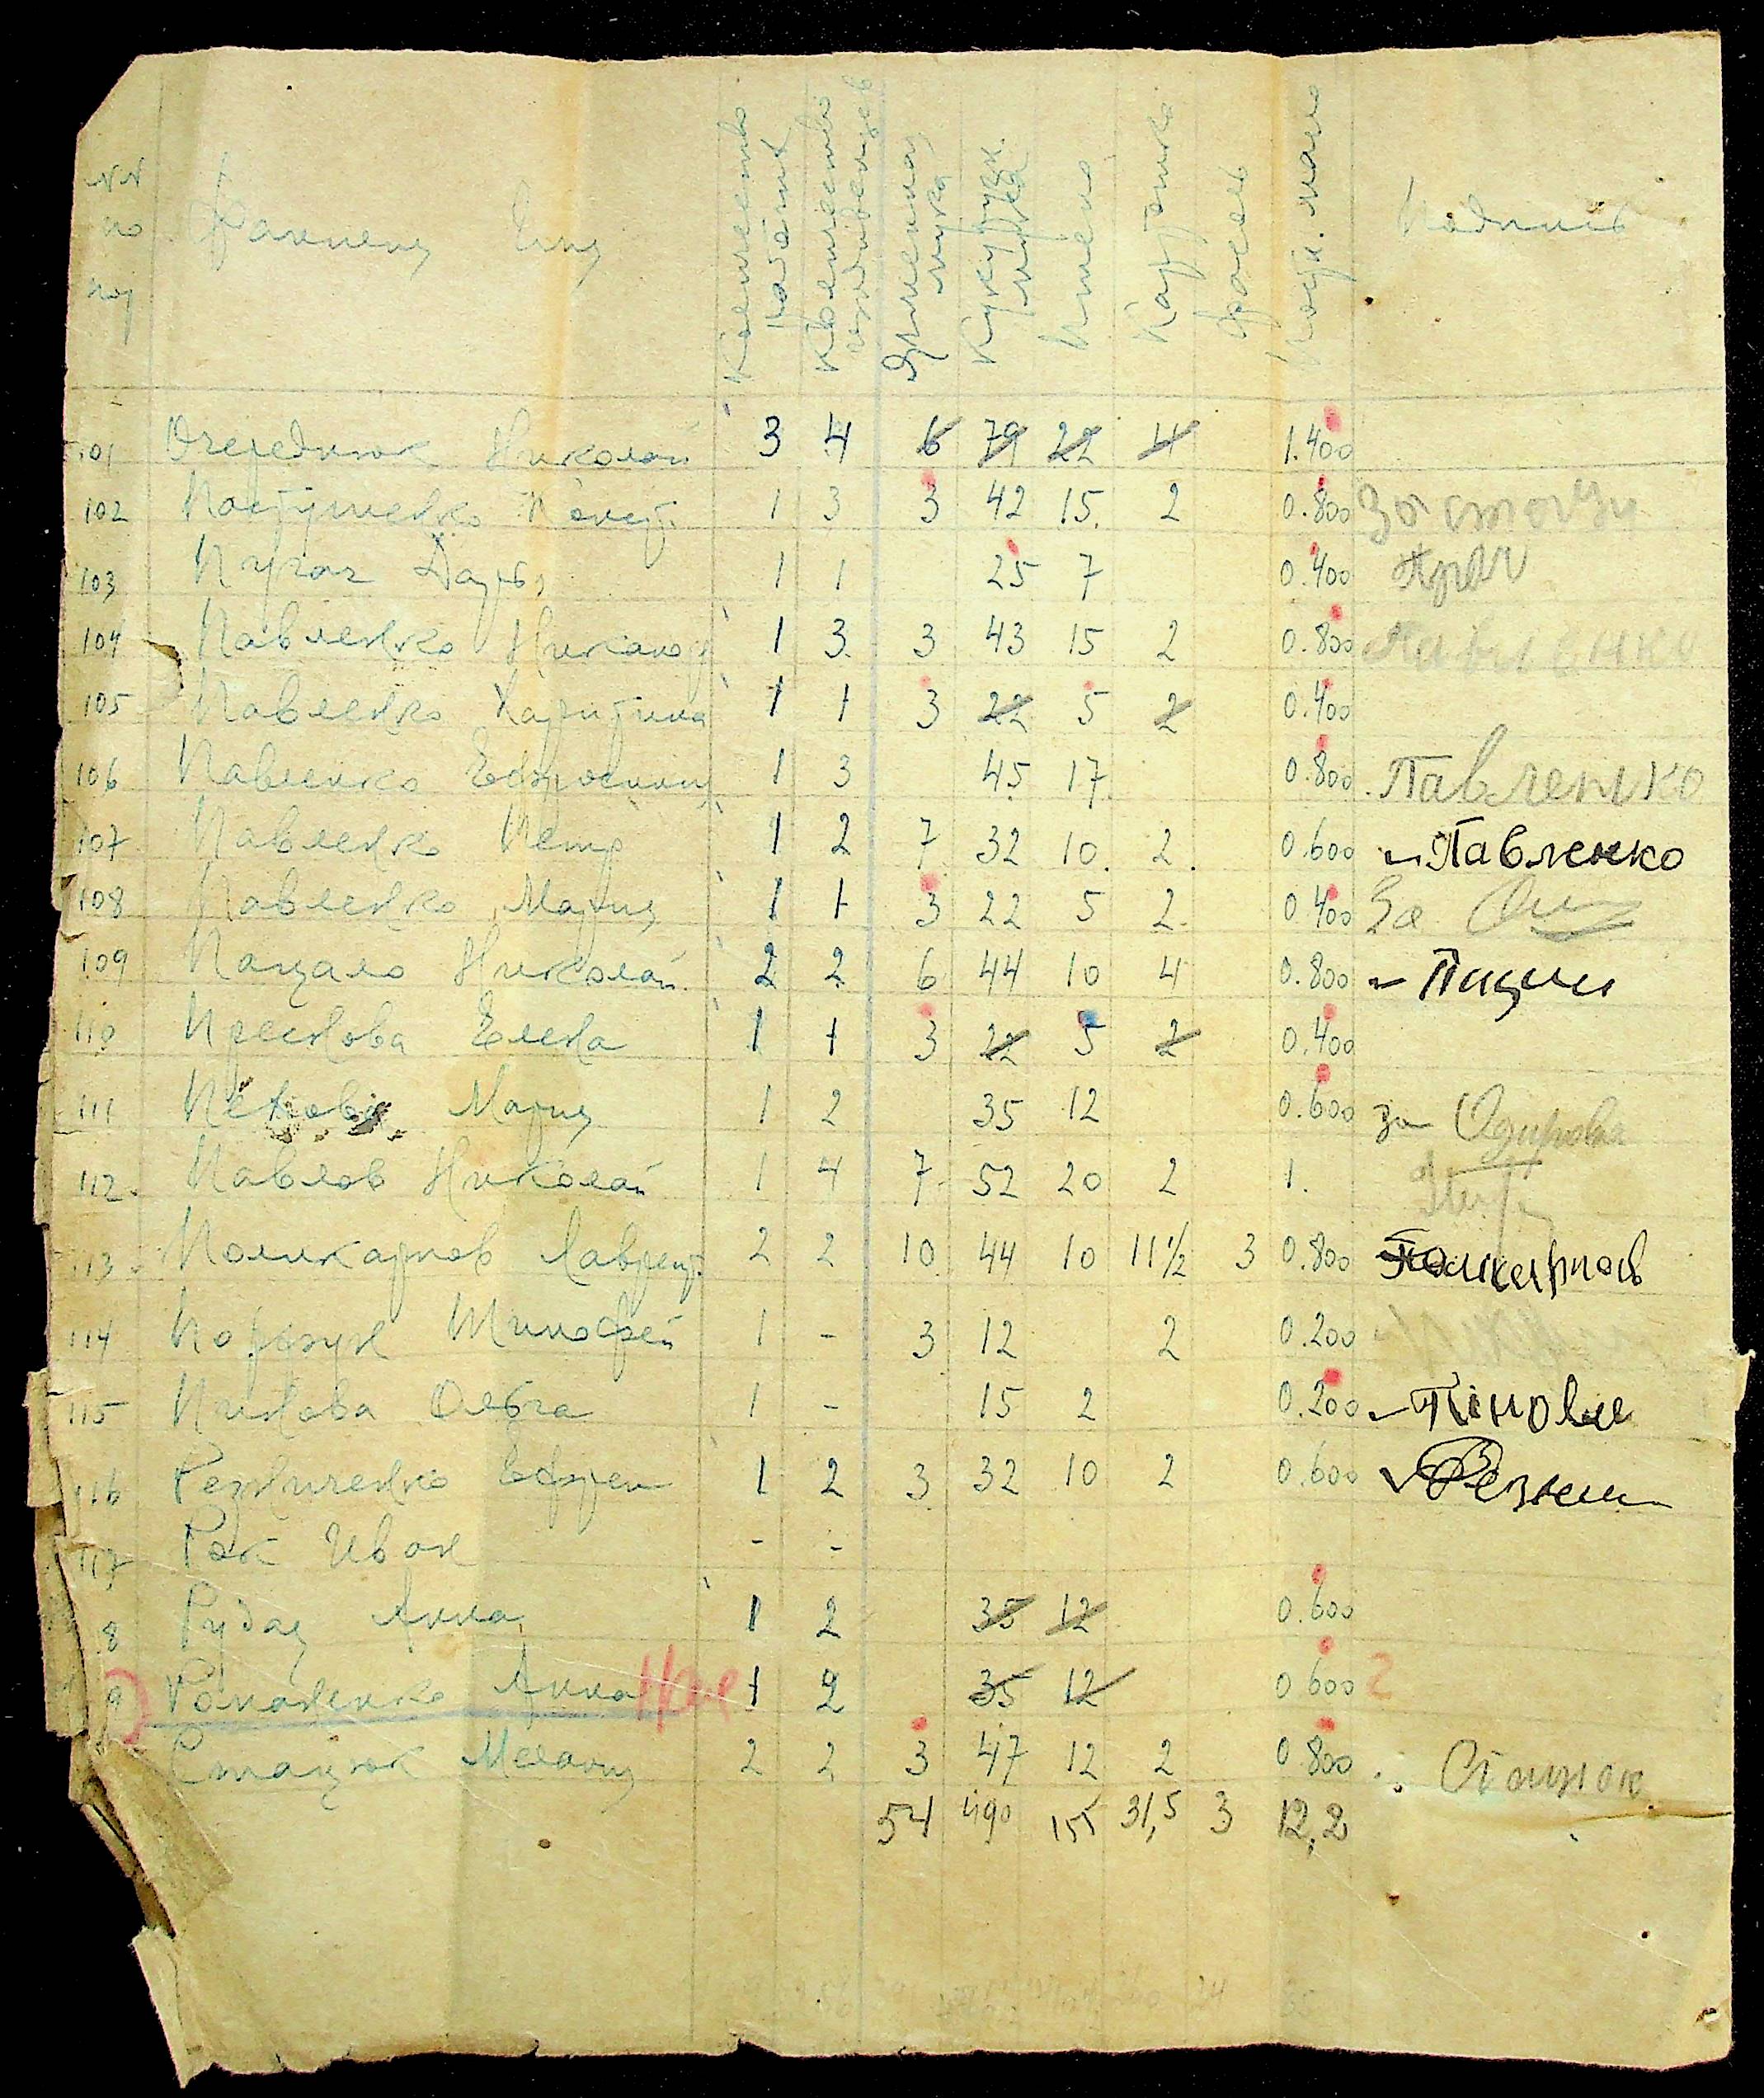 NN по пор Фамилия Имя Количество работ. Количество иждивенцев Ячменная мука Кукурузн. мука Пшено Картошка Фасоль Постн. масло Подпись
101 Очереднюк Николай 3 4 6 79 22 4 1.400
102 1 3 3 42 15. 2 0.800
103 Пугач Дарья 1 1 25 7 0.400
104 Павленко Никанор 1 3. 3 43 15 2 0.800 Павленко
105 Павленко Харитина 1 1 3 22 5 2 0.400
106 Павленко Ефросиния 1 3 45 17. 0.800. Павленко
107. Павленко Петр 1 2 7 32 10. 2. 0.600 Павленко
108 Павленко Мария 1 1 3 22 5 2. 0.400 За
109 Пацало Николай 2 2 6 44 10 4 0.800
110 Елена 1 1 3 22 5 2 0.400
111 Мария 1 2 35 12 0.600 за
112. Павлов Николай 1 4 7 52 20 2 1.
113. Поликарпов Лаврент. 2 2 10 44 10 11½ 3 0.800 Поликарпов
114 Тимофей 1 - 3 12 2 0.200
115 Пинова Ольга 1 - 15 2 0.200
116 Резниченко Ефрем 1 2 3 32 10 2 0.600
117 Рак Иван - -
8 Рудая Анна 1 2 35 12 0.600
9 Романенко Анна 1 2 35 12 0 600 2
Стацюк Мелания 2 2 3 47 12 2 0.800 Стацюк
54 490 155 31,5 3 12,2